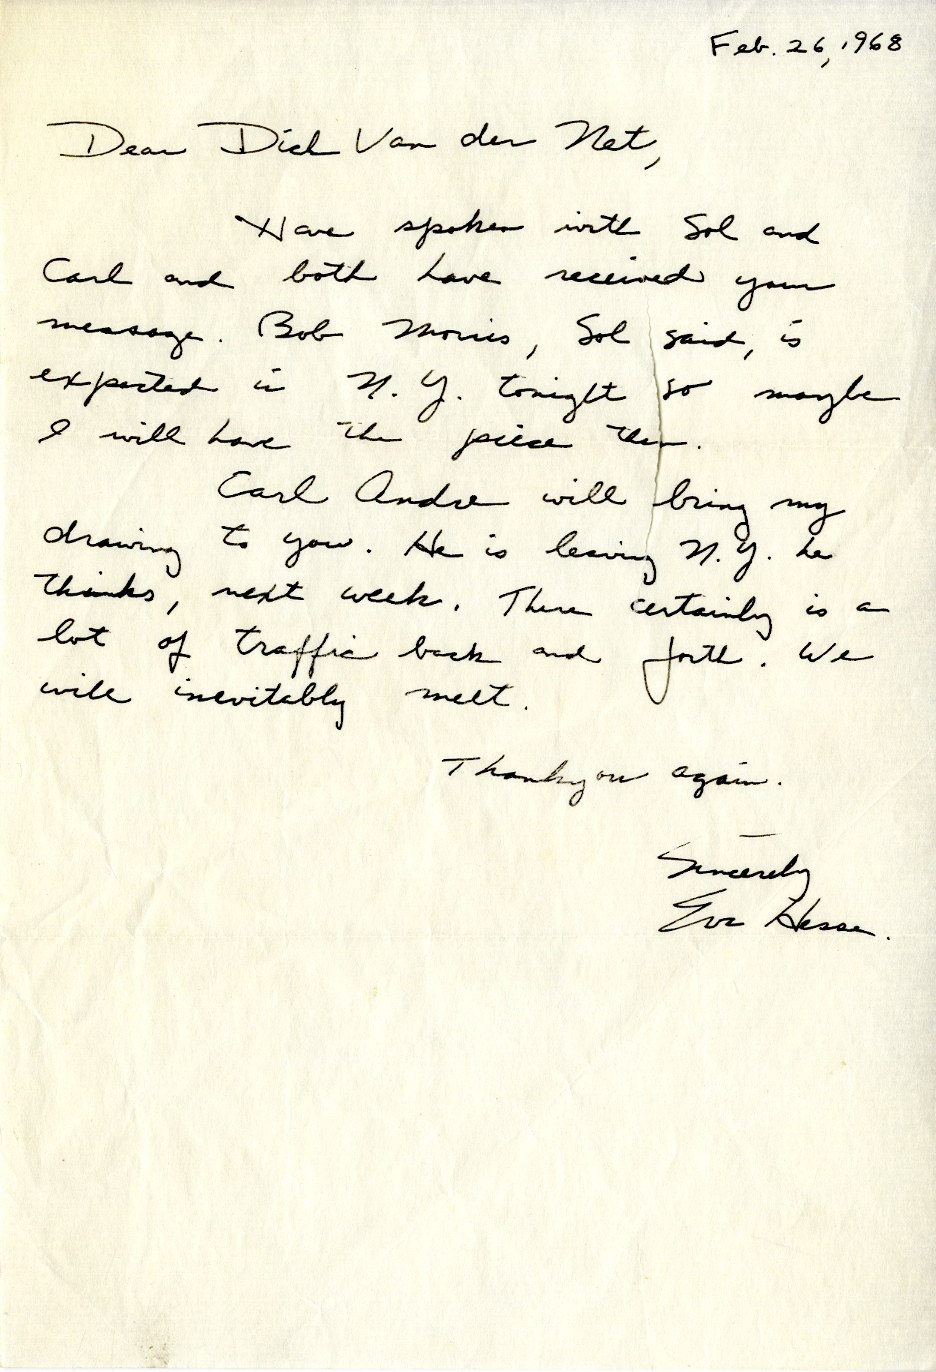 Feb. 26, 1968
Dear Dick Van der Net,
Have spoken with Sol and
Carl and both have received your
message. Bob Morris, Sol said, is
expected in N.Y. tonight so maybe
I will have the piece then.
Carl Andre will bring my
drawing to you. He is leaving N.Y. he
thinks, next week. There certainly is a
lot of traffic back and forth. We
will inevitably meet.
Thankyou again.
Sincerely
Eva Hesse.